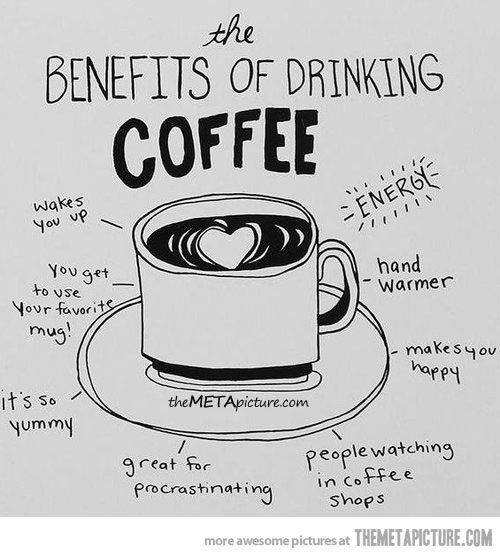 the
BENEFITS OF DRINKING
COFFEE
ENERGY
wakes
you up
hand
warmer
You get
to use
Your favorite
mug!
makes you
happy
it's so
yummy
theMETApicture.com
great for
procrastinating
people watching
in coffee
shops
more awesome pictures at THEMETAPICTURE.COM